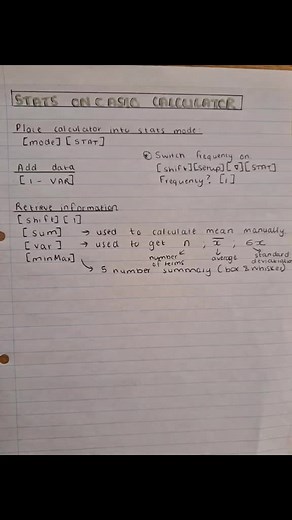 STATS ON CASIO CALCULATOR
Place calculator into stats mode
[mode] [STAT]
② Switch frequency on
[shift][setup][▽][STAT]
Frequency? [1]
Add data
[1 - VAR]
Retrieve information
[shift] [1]
[sum] → used to calculate mean manually
[var] → used to get n, x̅, σx
number of terms
average
standard deviation
[minMax]
↳ 5 number summary (box & whisker)